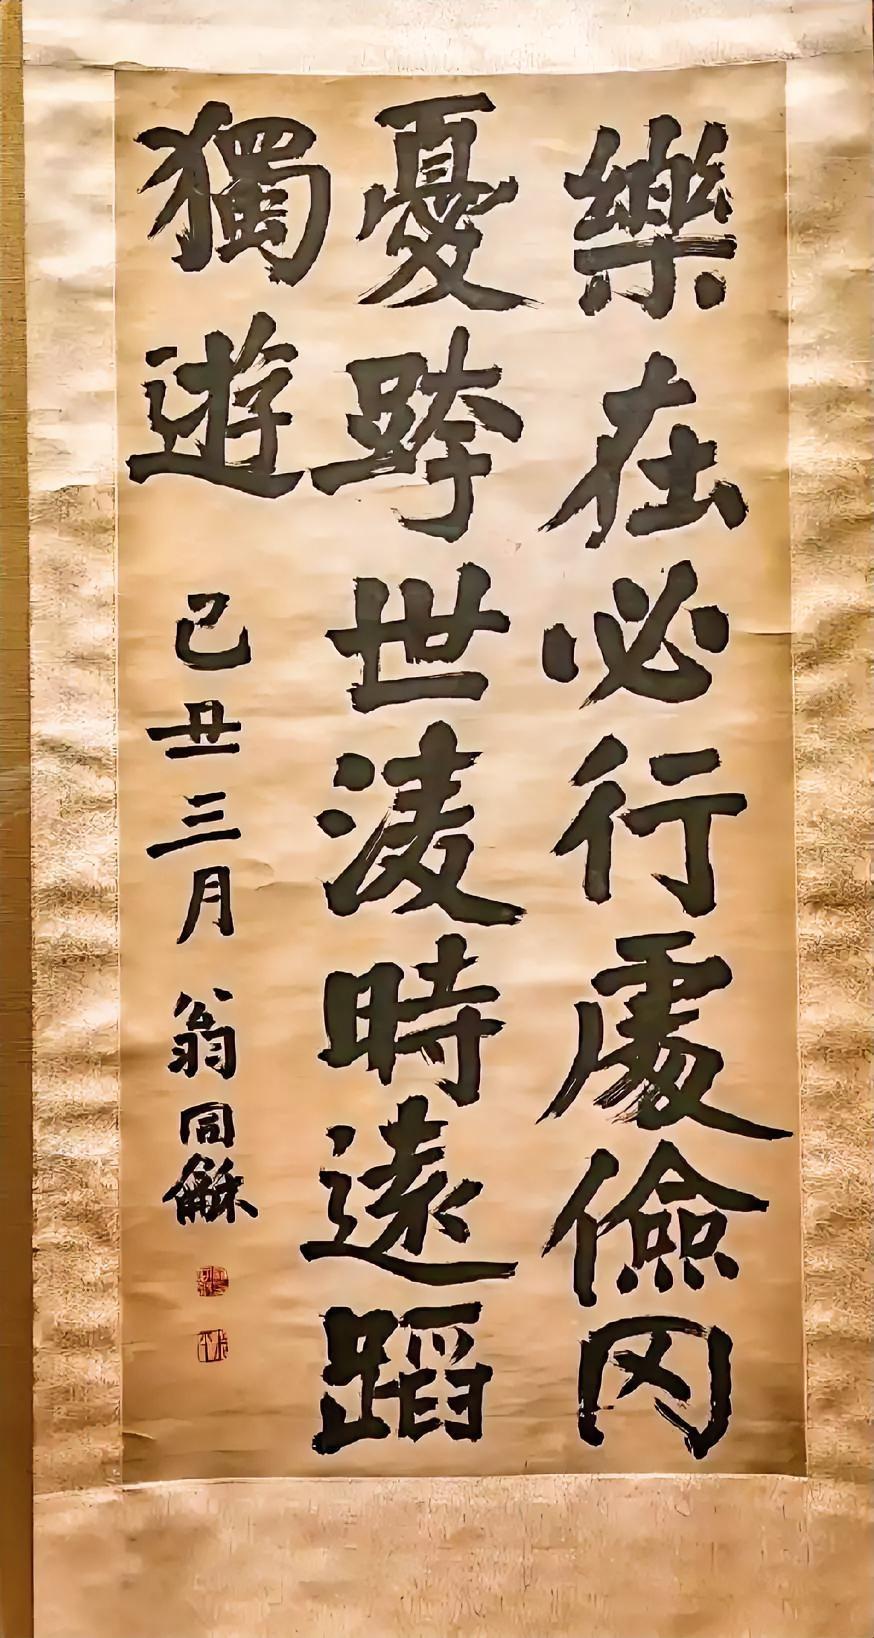 樂在必行處儉冈
憂跨世淩時遠蹈
獨遊
己丑三月 翁同龢